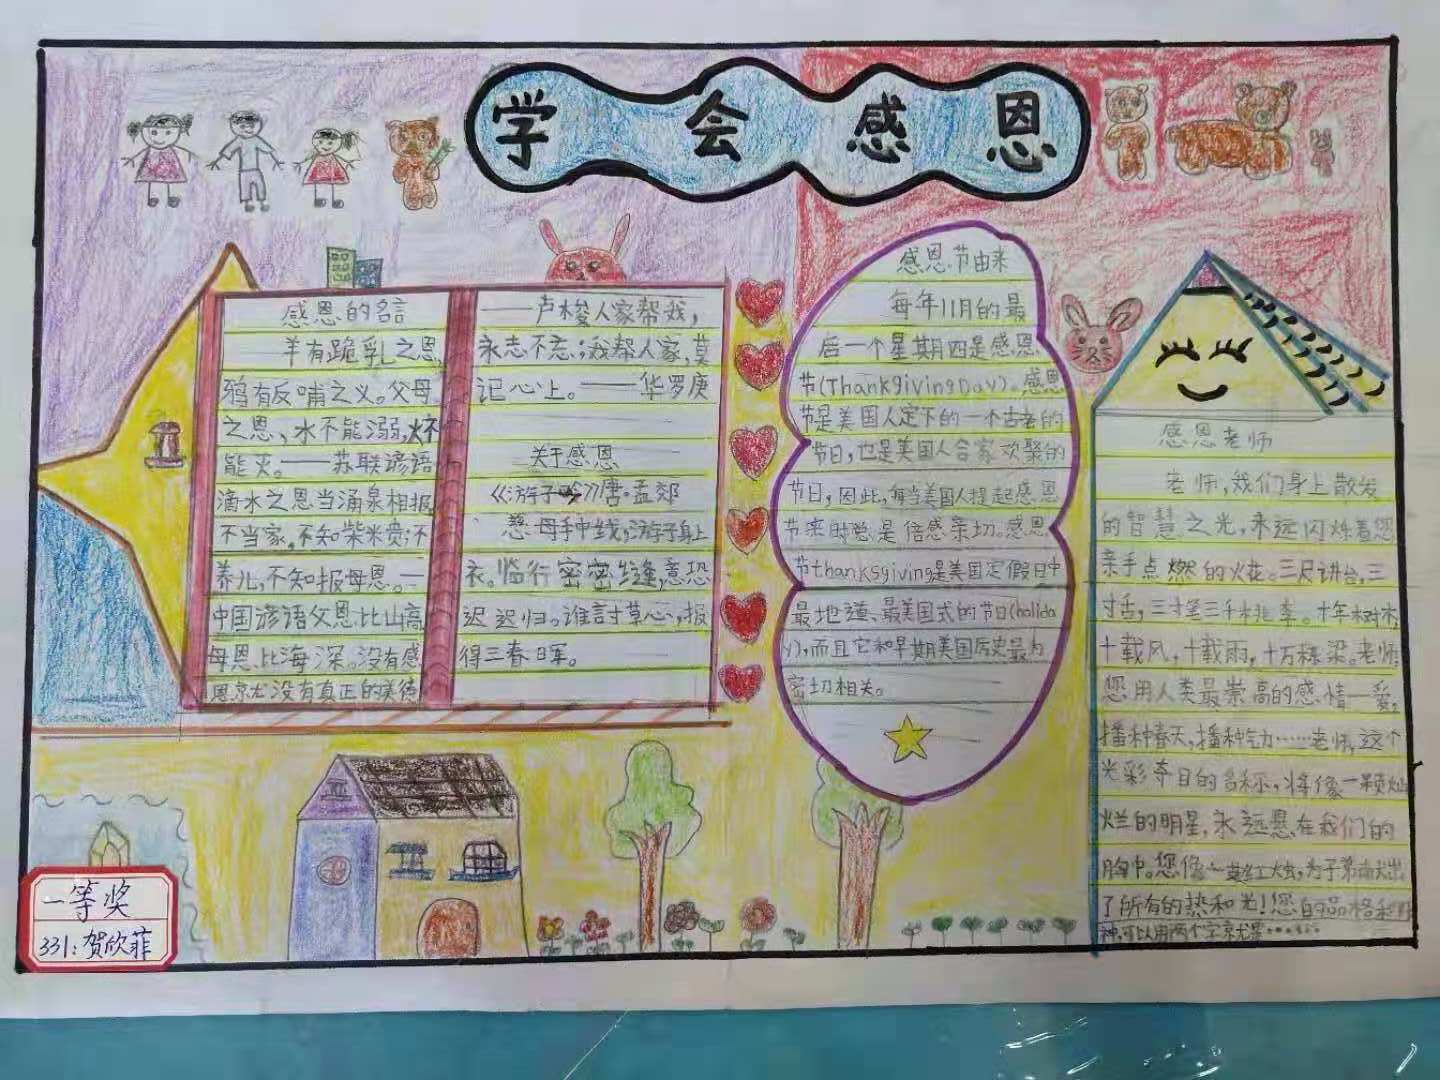 学会感恩
感恩的名言
羊有跪乳之恩,
鸦有反哺之义。父母
之恩,水不能溺,火不
能灭。——苏联谚语
滴水之恩当涌泉相报
不当家,不知柴米贵;不
养儿,不知报母恩。—
中国谚语父恩比山高
母恩比海深。没有感
恩京尤没有真正的美德
——卢梭人家帮我,
永志不忘;我帮人家,莫
记心上。——华罗庚
关于感恩
《游子吟》唐·孟郊
慈母手中线,游子身上
衣。临行密密缝,意恐
迟迟归。谁言寸草心,报
得三春日军。
感恩节由来
每年11月的最
后一个星期四是感恩
节(Thanksgiving Day)。感恩
节是美国人定下的一个古老的
节日,也是美国人合家欢聚的
节日,因此,每当美国人提起感恩
节来时总是倍感亲切。感恩
节thanksgiving是美国定假日中
最地道、最美国式的节日(holida
y),而且它和早期美国历史最为
密切相关。
感恩老师
老师,我们身上散发
的智慧之光,永远闪烁着您
亲手点燃的火花。三尺讲台,三
寸舌,三寸笔三千桃李。十年树木,
十载风,十载雨,十万栋梁。老师,
您用人类最崇高的感情——爱,
播种春天,播种力……老师,这个
光彩夺目的名称,将像一颗灿
烂的明星,永远悬在我们的
胸中。您像一支红烛,为子弟献出
了所有的热和光!您的品格和
种,可以用两个字京尤是······
一等奖
331:贺欣菲